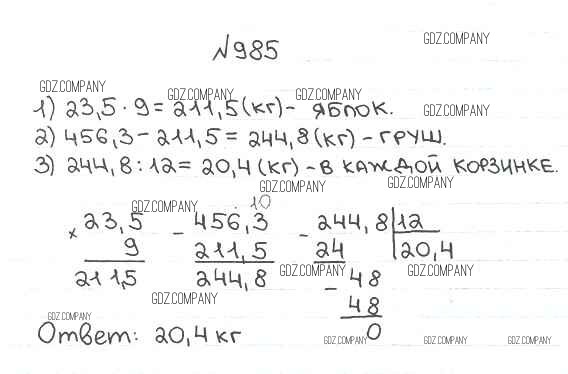 №985
GDZ.COMPANY
GDZ.COMPANY
GDZ.COMPANY
GDZ.COMPANY
1) 23,5 · 9 = 211,5 (кг) - ЯБЛОК.
GDZ.COMPANY
2) 456,3 - 211,5 = 244,8 (кг) - ГРУШ.
3) 244,8 : 12 = 20,4 (кг) - В КАЖДОЙ КОРЗИНКЕ.
GDZ.COMPANY
GDZ.COMPANY
GDZ.COMPANY
· 10
× 23,5 - 456,3 - 244,8 | 12
9 211,5 24 20,4
211,5 244,8 - 48
GDZ.COMPANY
GDZ.COMPANY
GDZ.COMPANY
48
GDZ.COMPANY
0
Ответ: 20,4 кг
GDZ.COMPANY
GDZ.COMPANY
GDZ.COMPANY